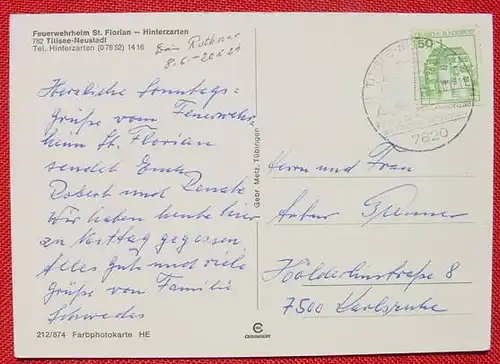 Feuerwehrheim St. Florian – Hinterzarten
782 Titisee-Neustadt
Tel. Hinterzarten (0 76 52) 14 16
8.6.-
Herzliche Sonntags-
grüße vom Feuerwehr
heim St. Florian
sendet Euch
Robert und Renate
Wir haben heute hier
zu Mittag gegessen
Alles Gute und viele
Grüße von Familie
Schwedes
212/874 Farbphotokarte HE
Gebr. Metz, Tübingen
CEKUMWERT
DEUTSCHE BUNDESPOST
50
TITISEE-
7820
Herrn und Frau
Artur
Hölderlinstraße 8
7500 Karlsruhe